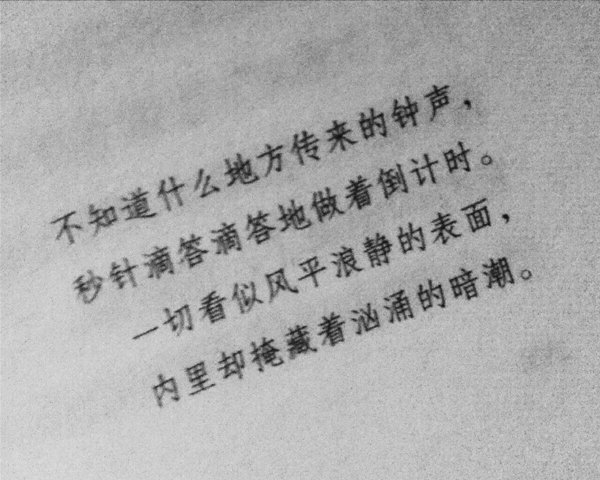 不知道什么地方传来的钟声，
秒针滴答滴答地做着倒计时。
一切看似风平浪静的表面，
内里却掩藏着汹涌的暗潮。